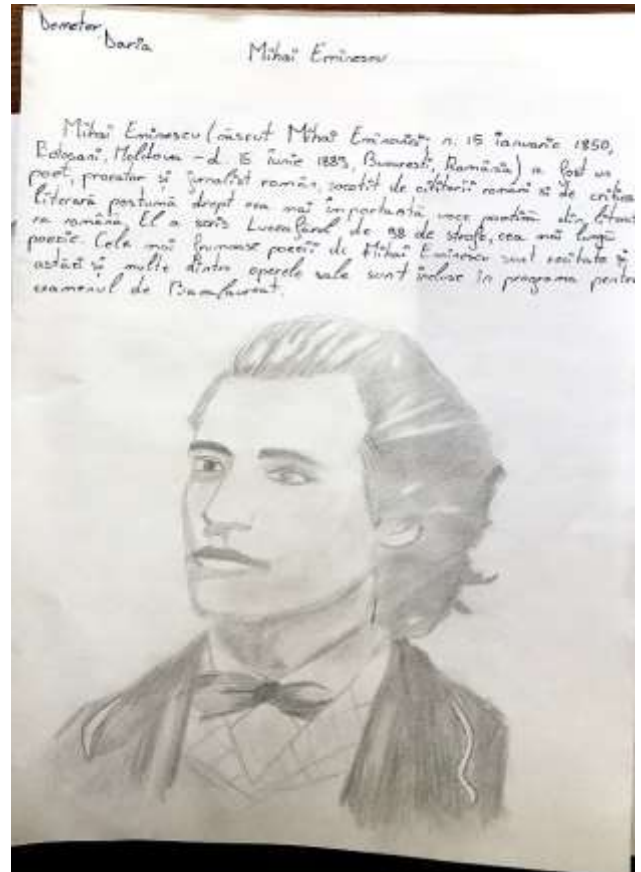 Demeter
Daria
Mihai Eminescu
Mihai Eminescu (născut Mihai Eminovici; n. 15 ianuarie 1850,
Botoșani, Moldova - d. 15 iunie 1889, București, România) a fost un
poet, prozator și jurnalist român, socotit de cititorii români și de critica
literară postumă drept cea mai importantă voce poetică din literatu
ra română. El a scris Luceafărul de 98 de strofe, cea mai lungă
poezie. Cele mai frumoase poezii de Mihai Eminescu sunt recitate și
astăzi și multe dintre operele sale sunt incluse în programa pentru
examenul de Bacalaureat.